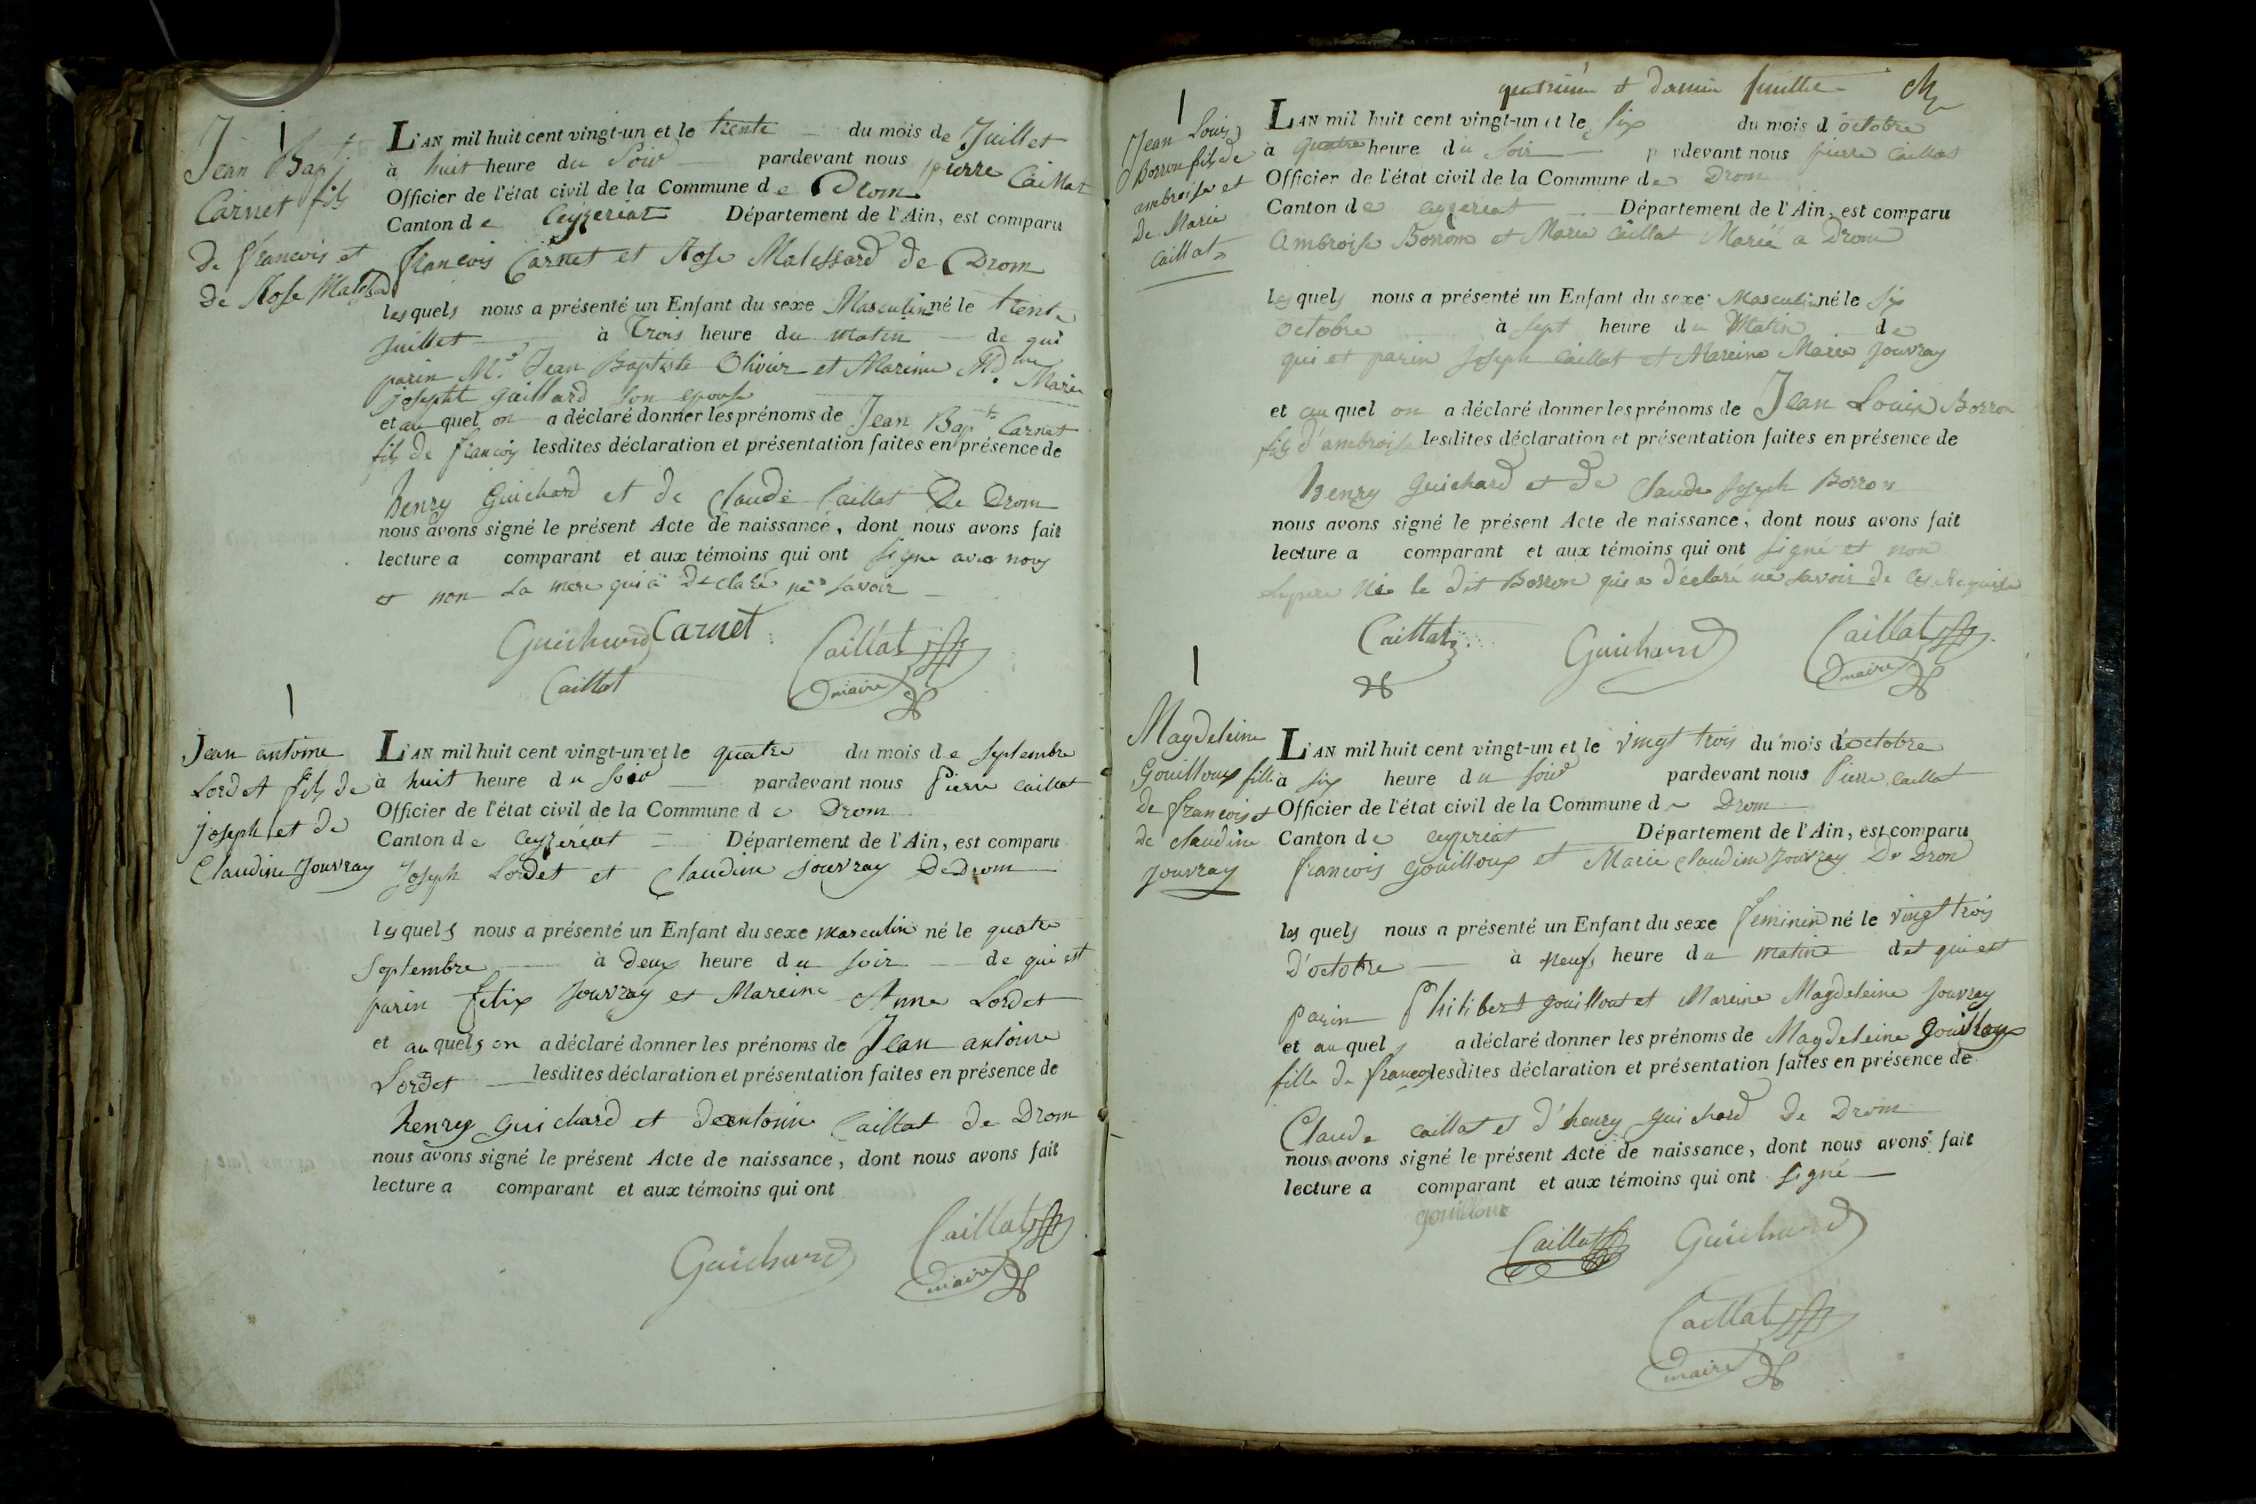 Jean Bapt
Carnet fils
de françois et
de Rose Malessard
L'AN mil huit cent vingt-un et le trente du mois de Juillet
à huit heure du Soir pardevant nous pierre Caillat
Officier de l'état civil de la Commune de Drom
Canton de Ceyzeriat Département de l'Ain, est comparu
françois Carnet et Rose Malessard de Drom
lesquels nous a présenté un Enfant du sexe Masculin né le trente
juillet à trois heure du matin de qui
parin Mr. Jean Baptiste Olivier et Mareine Md. Marie
Josephte gaillard son epouse
et au quel on a déclaré donner les prénoms de Jean Bapte Carnet
fils de françois lesdites déclaration et présentation faites en présence de
henry Guichard et de Claude Caillat De Drom
nous avons signé le présent Acte de naissance, dont nous avons fait
lecture a comparant et aux témoins qui ont signé avec nous
et non la mere qui a declaré ne savoir
Guichard Carnet Caillat
Caillat maire
Jean antoine
Lordet fils de
joseph et de
Claudine Jouvray
L'AN mil huit cent vingt-un et le quatre du mois de septembre
à huit heure du soir pardevant nous Pierre caillat
Officier de l'état civil de la Commune de Drom
Canton de ceyzériat Département de l'Ain, est comparu
Joseph Lordet et Claudine jouvray De drom
lesquels nous a présenté un Enfant du sexe masculin né le quatre
septembre à deux heure du soir de qui est
parin felix Jouvray et Mareine Anne Lordet
et au quels on a déclaré donner les prénoms de Jean antoine
Lordet lesdites déclaration et présentation faites en présence de
henry guichard et de antoine Caillat de Drom
nous avons signé le présent Acte de naissance, dont nous avons fait
lecture a comparant et aux témoins qui ont
Guichard Caillat
maire
quatrième et dernier feuillet
Jean Louis
Borron fils de
ambroise et
de Marie
Caillat
L'AN mil huit cent vingt-un et le six du mois d'octobre
à quatre heure du soir pardevant nous pierre Caillat
Officier de l'état civil de la Commune de Drom
Canton de ceyzeriat Département de l'Ain, est comparu
Ambroise Borron et Marie Caillat Marié a Drom
lesquels nous a présenté un Enfant du sexe Masculin né le six
octobre à sept heure du Matin de
qui et parin Joseph caillat et Mareine Marie jouvray
et au quel on a déclaré donner les prénoms de Jean Louis Borron
fils d'ambroise lesdites déclaration et présentation faites en présence de
henry guichard et de Claude Joseph Borron
nous avons signé le présent Acte de naissance, dont nous avons fait
lecture a comparant et aux témoins qui ont signé et non
le pere le dit Borron qui a déclaré ne savoir de ces requise
Caillat Guichard Caillat
maire
Magdeleine
Gouilloux fille
de françois et
de claudine
jouvray
L'AN mil huit cent vingt-un et le vingt trois du mois d'octobre
à six heure du soir pardevant nous Pierre caillat
Officier de l'état civil de la Commune de Drom
Canton de ceyzeriat Département de l'Ain, est comparu
françois gouilloux et Marie claudine jouvray De Drom
les quels nous a présenté un Enfant du sexe feminin né le vingt trois
D'octobre à neufs heure du matin det qui est
parin Philibert gouilloux et Mareine Magdeleine jouvray
et au quel a déclaré donner les prénoms de Magdeleine gouilloux
fille de françois lesdites déclaration et présentation faites en présence de
Claude caillat et d'henry guichard de Drom
nous avons signé le présent Acte de naissance, dont nous avons fait
lecture a comparant et aux témoins qui ont signé
gouilloux
Caillat Guichard
Caillat
maire